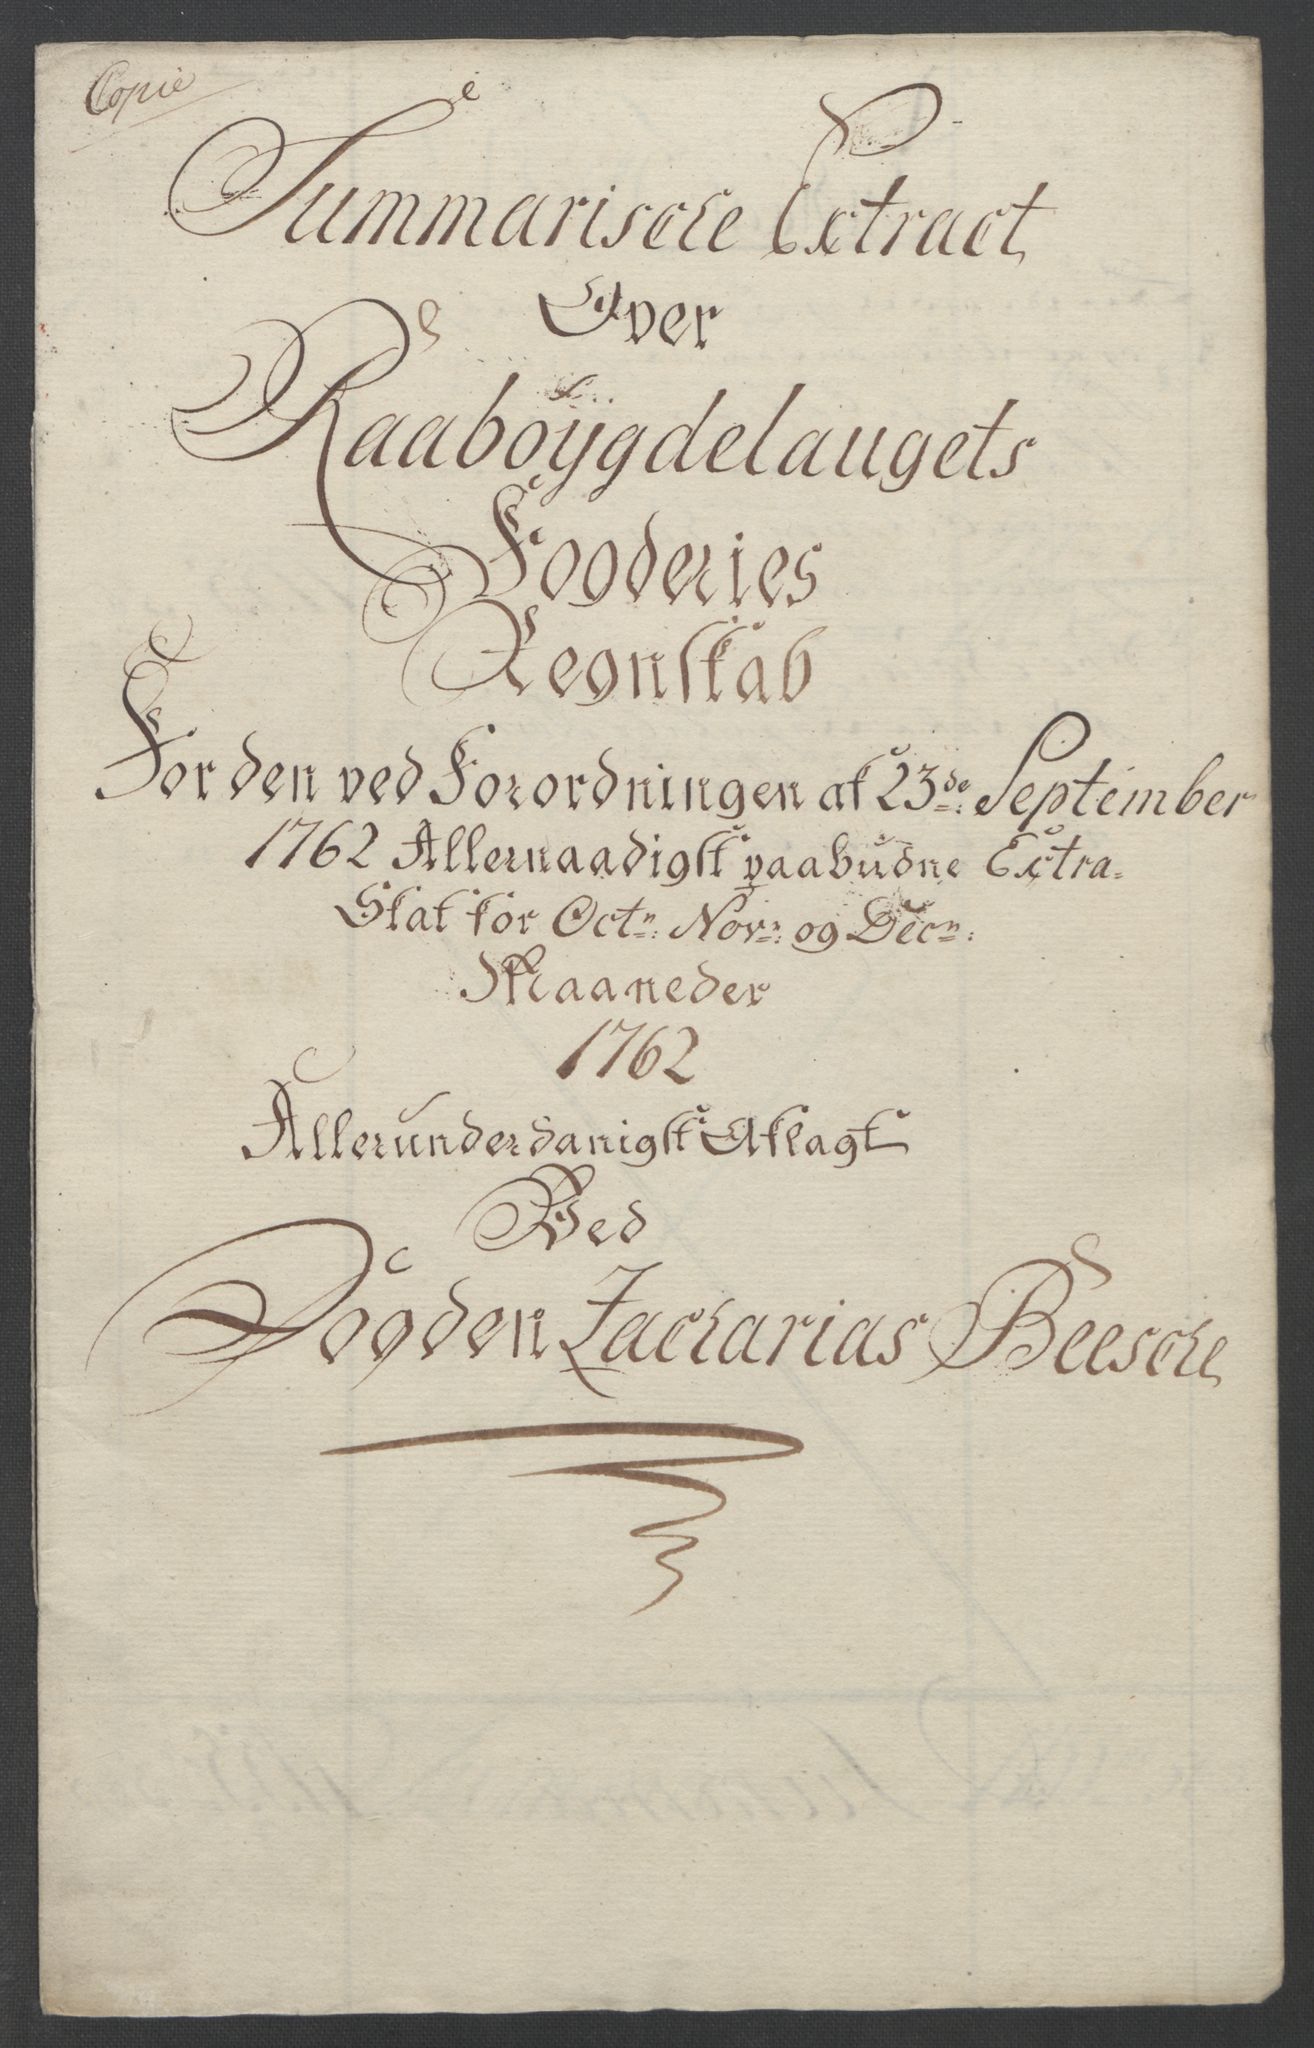 Copie
Summarische Extract
Over
Raaboÿgdelaugets
Fogderies
Regnskab
For den ved Forordningen af 23de: September
1762 Allernaadigst paabudne Extra-
Skat for Octr: Novr: og Decr:
Maaneder
1762
Allerunderdanigst Aflagt
Ved
Fogden Zacharias Beesche